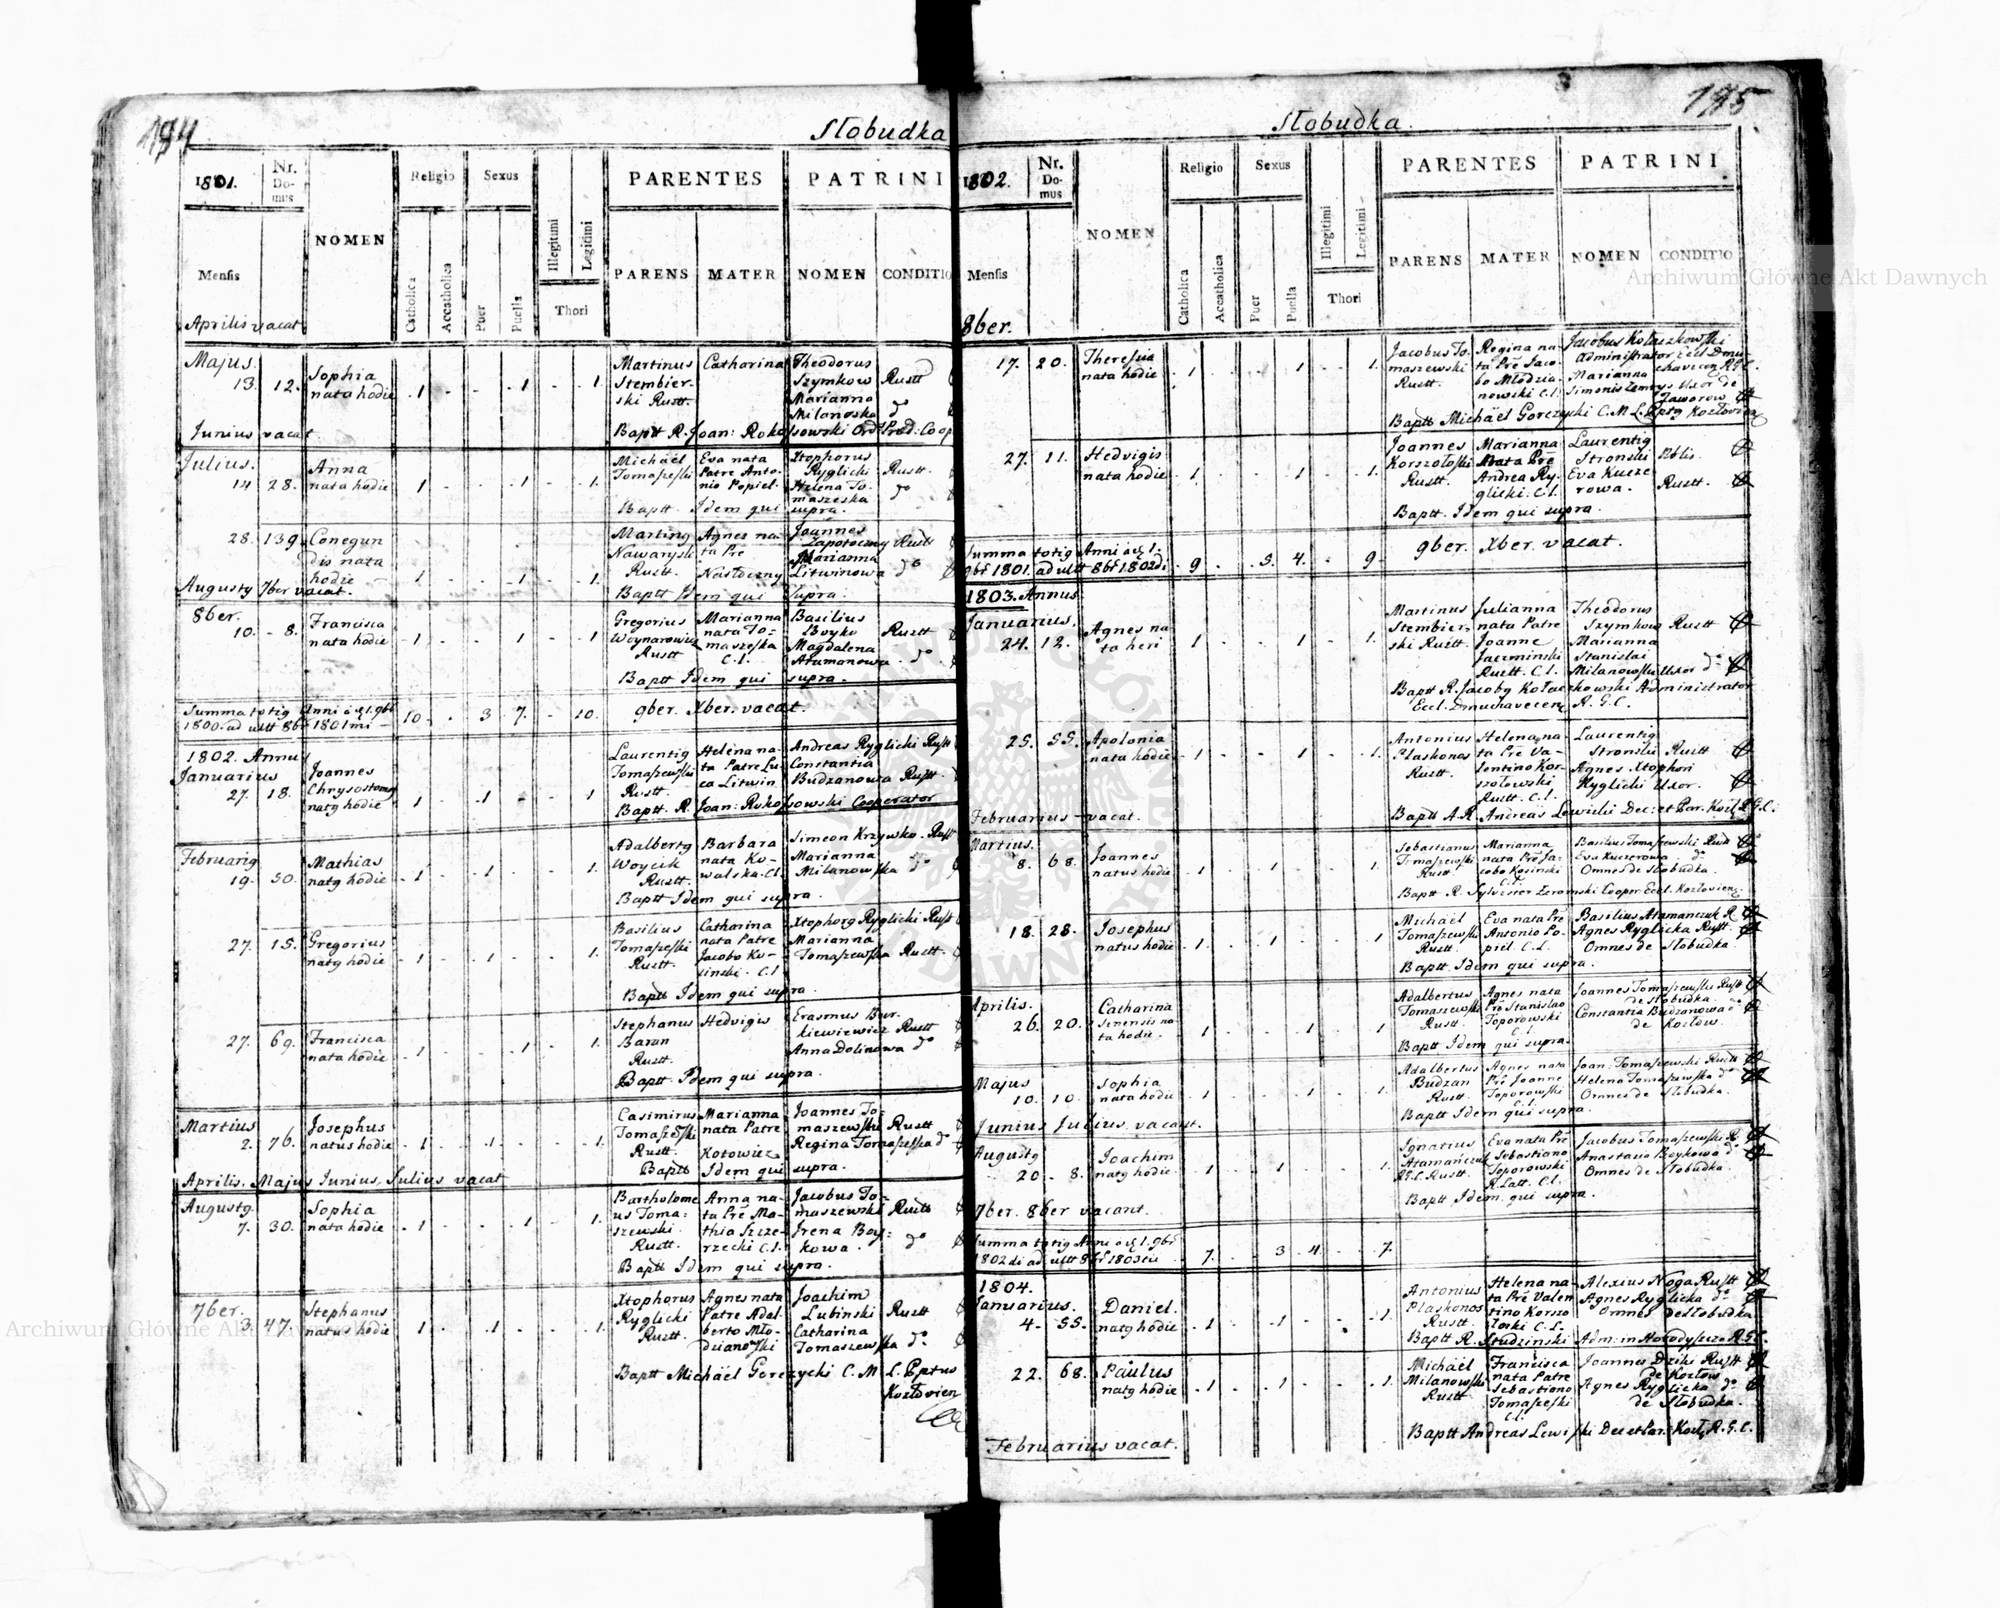 194
Słobudka
1801.
Nr. Do- mus
NOMEN
Religio
Sexus
PARENTES
PATRINI
Illegitimi
Legitimi
Mensis
Catholica
Accatholica
Puer
Puella
Thori
PARENS
MATER
NOMEN
CONDITIO
Aprilis vacat
Majus.
13. 12. Sophia nata hodie . 1 . . . 1 . . 1.
Martinus Stembier- ski Rustt.
Catharina
Theodorus Szymkow Rustt
Marianna Milanoska do
Baptt R. Joan: Rokossowski Ord: Præd: Coop
Junius vacat
Julius.
14 28. Anna nata hodie . 1 . . . 1 . . 1.
Michäel Tomaszeski
Eva nata Patre Anto- nio Popiel.
Xtophorus Ryglicki Rustt.
Helena To- maszeska do
Baptt. Idem qui supra.
28. 139. Conegun dis nata hodie . 1 . . . 1 . . 1.
Marting Nawarysk Rustt.
Agnes na- ta Pre
Joannes Zapotoczny Rustt
Marianna Litwinowa do
Baptt Idem qui supra.
Augusty 7ber vacat.
8ber.
10. - 8. Francisca nata hodie . 1 . . . 1 . . 1
Gregorius Woynarowicz Rustt
Marianna nata To- maszeska C.l.
Basilius Boyko Rustt
Magdalena Atamonowa do
Baptt Idem qui supra.
Summa totig Anni á 1. 9br 1800. ad ultt 8br 1801mi - 10. . 3 7. . 10.
9ber. Xber. vacat.
1802. Annu
Januarius
27. 18. Joannes Chrysostomg natg hodie . 1 . . 1 . . . 1
Laurentig Tomaszewski Rustt.
Helena na- ta Patre Lu- ca Litwin
Andreas Ryglicki Rustt
Constantia Budzanowa Rustt.
Baptt. R. Joan: Rokossowski Cooperator
Februarig
19. 30. Mathias natg hodie . 1 . . 1 . . . 1.
Adalbertg Woycik Rustt.
Barbara nata Ko- walska. C.l.
Simeon Krzywko. Rustt
Marianna Milanowska do
Baptt Idem qui supra.
27. 15. Gregorius natg hodie . 1 . . 1 . . . 1.
Basilius Tomaszeski Rustt.
Catharina nata Patre Jacobo Ko- sinski. C.l
Xtephorg Ryglicki Rustt
Marianna Tomaszewska Rustt.
Baptt Idem qui supra.
27. 69. Francisca nata hodie . 1 . . . 1 . . 1.
Stephanus Baran Rustt.
Hedvigis
Erasmus Bur- kiewiewicz Rustt
Anna Dolinowa do
Baptt. Idem qui supra.
Martius
2. 76. Josephus natus hodie . 1 . . 1 . . . 1.
Casimirus Tomaszeski Rustt.
Marianna nata Patre Kotowicz
Joannes To- maszewski Rustt
Regina Tomaszeska do
Baptt Idem qui supra.
Aprilis. Majus Junius. Julius vacat
Augustg.
7. 30. Sophia nata hodie . 1 . . . 1 . . 1.
Bartholome us Toma: szewski Rustt.
Anna na- ta Pre Ma- thia Szcze- rzecki C.l.
Jacobus To- maszewski Rustt
Irena Boy- kowa. do
Baptt Idem qui supra.
7ber.
3. 47. Stephanus natus hodie . 1 . . 1 . . . 1.
Xtophorus Ryglicki Rustt.
Agnes nata Patre Adal- berto Mło- dzianoski
Joachim Lubinski Rustt
Catharina Tomaszewska do
Baptt Michäel Gorczycki C. M. L. Eptus Kozłovien
195
Słobudka.
1802.
Nr. Do- mus
NOMEN
Religio
Sexus
PARENTES
PATRINI
Illegitimi
Legitimi
Mensis
Catholica
Accatholica
Puer
Puella
Thori
PARENS
MATER
NOMEN
CONDITIO
8ber.
17. 20. Theresia nata hodie . 1 . . . 1 . . 1.
Jacobus To- maszewski Rustt.
Regina na- ta Pre Jaco- bo Młodzia- nowski C.l.
Jacobus Kołaczkowski Administrator Eccl Dmu- chavecen R.G.C.
Marianna Simonis Uxor de Jaworow
Baptt Michäel Gorczycki C. M. L. Kozłovien
27. 11. Hedvigis nata hodie . 1 . . . 1 . . 1.
Joannes Korszołoski Rustt.
Marianna Nata Pre Andrea Ry- glicki. C.l.
Laurentig Stronski Nblis.
Eva Kucze rowa. Rustt.
Baptt. Idem qui supra.
Summa totig Anni á 1. 9br 1801. ad ultt 8br 1802di . 9 . . 5. 4. . 9.
9ber. Xber. vacat.
1803. Annus
Januarius.
24. 12. Agnes na- ta heri . 1 . . . 1 . . 1.
Martinus Stembier- ski Rustt.
Julianna nata Patre Joanne Jaczminski Rustt. C.l.
Theodorus Szymkow Rustt
Marianna Stanislai Milanowski Uxor do
Baptt R. Jacobg Kołaczkowski Administrator Eccl. Dmuchavecen R. G. C.
25. 55. Apolonia nata hodie . 1 . . . 1 . . 1.
Antonius Płaskonos Rustt.
Helena na- ta Pre Va- lentino Kor- szołowski Rustt. C.l.
Laurentig Stronski Rustt
Agnes Xtophori Ryglicki Uxor.
Baptt A. R. Andreas Lewicki Dec: et Par. Kozł. R. G. C.
Februarius vacat.
Martius.
8. 68. Joannes natus hodie . 1 . . 1 . . . 1
Sebastianus Tomaszeski Rustt.
Marianna nata Pre Ja- cobo Kosinski C.l.
Basilius Tomaszewski Rustt
Eva Kuczerowa. do
Omnes de Słobudka.
Baptt. R. Sylvester Zeromski Cooper Eccl. Kozłovien:
18. 28. Josephus natus hodie . 1 . . 1 . . . 1
Michäel Tomaszewski Rustt.
Eva nata Pre Antonio Po- piel. C.l.
Basilius Atamanczuk R.
Agnes Ryglicka Rustt.
Omnes de Słobudka.
Baptt. Idem qui supra.
Aprilis.
26. 20. Catharina Senensis na- ta hodie. 1 . . . 1 . . 1
Adalbertus Tomaszewski Rustt.
Agnes nata Pre Stanislao Toporowski C.l.
Joannes Tomaszewski Rustt de Słobudka
Constantia Budzanowa do de Kozłow.
Baptt Idem qui supra.
Majus
10. 10. Sophia nata hodie . 1 . . . 1 . . 1.
Adalbertus Budzan Rustt.
Agnes nata Pre Joanne Toporowski C.l.
Joan. Tomaszewski Rustt
Helena Tomaszewska do
Omnes de Słobudka.
Baptt Idem qui supra.
Junius Julius. vacant.
Augustg
20 - 8. Joachim natg hodie . 1 . . 1 . . . 1.
Ignatius Atamańczuk R.G.C. Rustt.
Eva nata Pre Sebastiano Toporowski R. Latt. C.l.
Jacobus Tomaszewski R.
Anastasia Boykowa do
Omnes de Słobudka.
Baptt Idem. qui supra.
7ber. 8ber vacant.
Summa totig Anni á 1. 9br 1802di ad ultt 8br 1803tii . 7. . . 3 . 4. . . 7.
1804.
Januarius.
4. - 55. Daniel. natg hodie . 1 . . 1 . . . 1.
Antonius Płaskonos Rustt.
Helena na- ta Pre Valen- tino Korszo- łoski C.l.
Alexius Noga Rustt
Agnes Ryglicka do
Omnes de Słobudka
Baptt R. Studzinski Adm: in Horodyszcze R. G. C.
22. 68. Paulus natg hodie . 1 . . 1 . . . 1.
Michäel Milanowski Rustt
Francisca nata Patre Sebastiano Tomaszeski C.l.
Joannes Dziki Rustt de Kozłow
Agnes Ryglicka do de Słobudka.
Baptt Andreas Lewiski Dec et Par. Kozł. R. G. C.
Februarius vacat.
Archiwum Główne Akt Dawnych
Archiwum Główne Akt Dawnych
ARCHIWUM GŁÓWNE AKT DAWNYCH